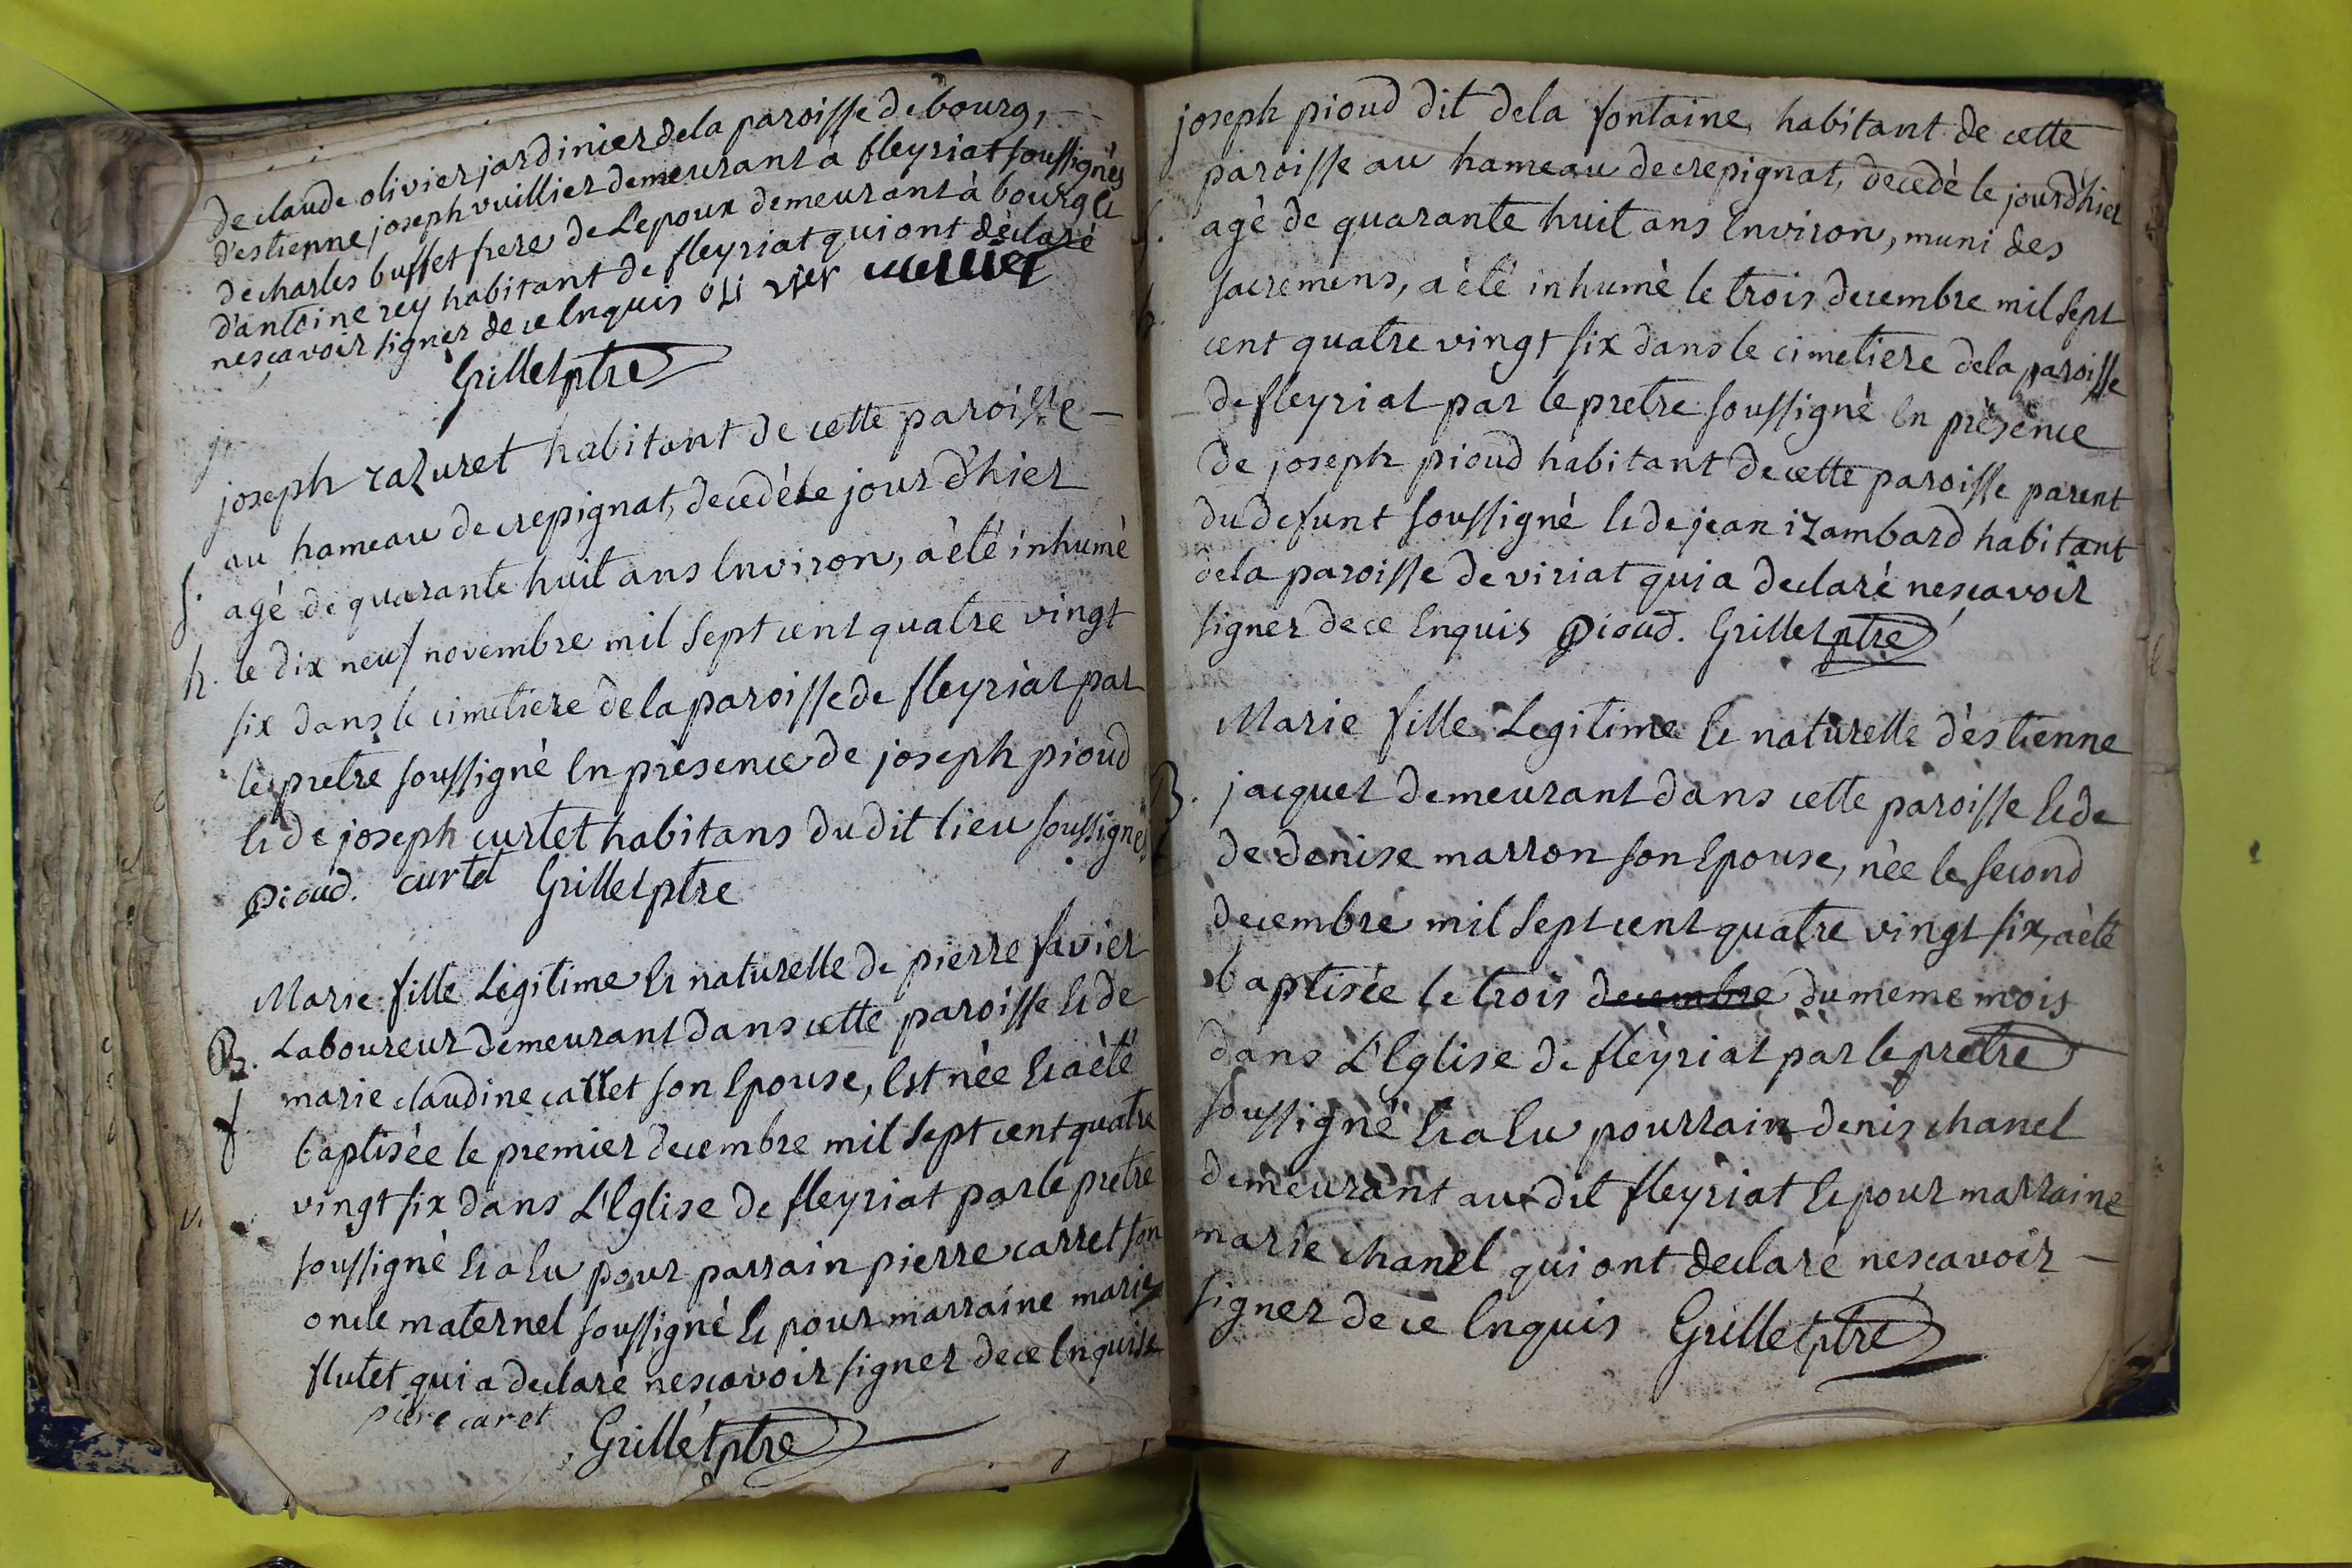 de claude olivier jardinier de la paroisse de bourg,
d'estienne joseph vuillier demeurant a fleyriat soussignés
de charles buffet frere de Lepoux demeurant à bourg et
d'antoine rey habitant de fleyriat qui ont déclaré
nescavoir signer de ce Enquis oli vier vuillier
Grillet ptre
joseph razuret habitant de cette paroisse
au hameau de crepignat, decedè le jour d'hier
S. agé de quarante huit ans Environ, a èté inhumè
h. le dix neuf novembre mil sept cent quatre vingt
six dans le cimetiere de la paroisse de fleyriat par
le pretre soussigné En présence de joseph pioud
et de joseph curtet habitans du dit lieu soussignés
Pioud. curtet Grillet ptre
Marie fille Legitime et naturelle de pierre favier
B. Laboureur demeurant dans cette paroisse et de
f marie claudine callet son Epouse, Est née et a èté
baptisèe le premier decembre mil sept cent quatre
vingt six dans L'Eglise de fleyriat par le pretre
soussigné et a Eu pour parrain pierre carret son
oncle maternel soussigné et pour marraine marie
flutet qui a declaré nescavoir signer de ce Enquise
piere caret Grillet ptre
joseph pioud dit de la fontaine habitant de cette
paroisse au hameau de crepignat, decedè le jour d'hier
S. agè de quarante huit ans Environ, muni des
h. sacremens, a èté inhumè le trois decembre mil sept
cent quatre vingt six dans le cimetiere de la paroisse
de fleyriat par le pretre soussigné En prèsence
de joseph pioud habitant de cette paroisse parent
du defunt soussigné et de jean izambard habitant
de la paroisse de viriat qui a declaré nescavoir
signer de ce Enquis Pioud. Grillet ptre
Marie fille Legitime et naturelle d'èstienne
B. jacquet demeurant dans cette paroisse et de
de denise marron son Epouse, nèe le second
decembre mil sept cent quatre vingt six, a èté
baptisèe le trois decembre du meme mois
dans L'Eglise de fleyriat par le pretre
soussigné et a Eu pour rain denis chanel
demeurant au dit fleyriat et pour marraine
marie chanel qui ont declaré nescavoir
signer de ce Enquis Grillet ptre